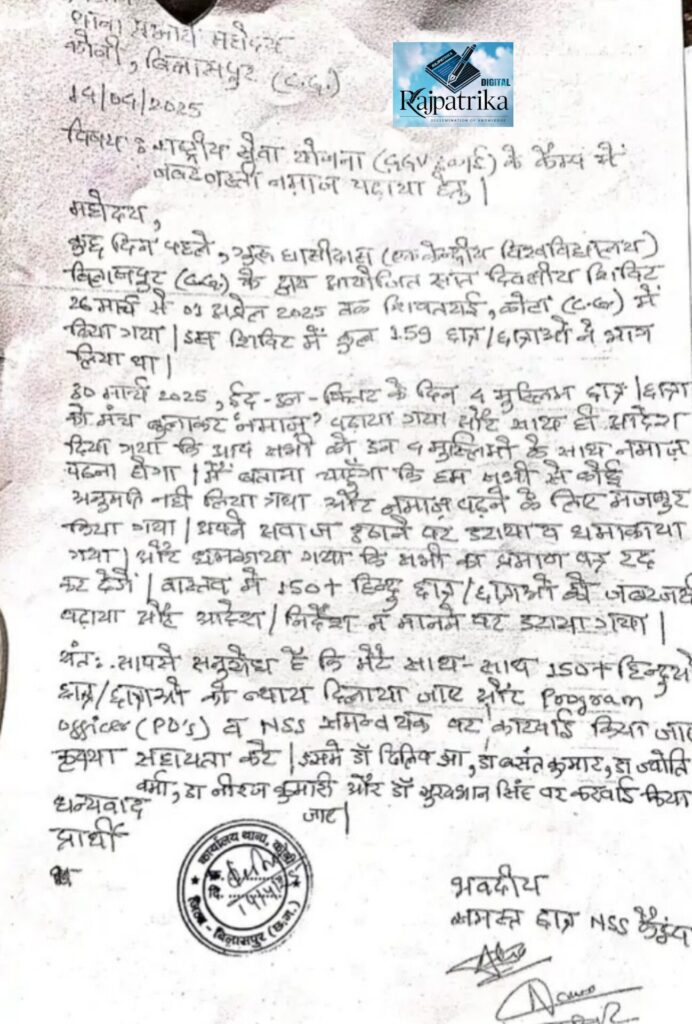 थाना प्रभारी महोदय
कोनी, बिलासपुर (c.g.)
14/04/2025
विषय : राष्ट्रीय सेवा योजना (GGV इकाई) के कैम्प में
जबरजस्ती नमाज पढ़ाया हेतु |
DIGITAL
Rajpatrika
DISSEMINATION OF KNOWLEDGE
महोदय,
कुछ दिन पहले, गुरू घासीदास (एक केन्द्रीय विश्वविद्यालय)
बिलासपुर (c.g.) के द्वारा आयोजित सात दिवसीय शिविर
26 मार्च से 01 अप्रैल 2025 तक शिवतराई, कोटा (c.g.) में
किया गया | इस शिविर में कुल 159 छात्र/छात्राओं ने भाग
लिया था |
30 मार्च 2025, ईद-उल-फितर के दिन 4 मुस्लिम छात्र/छात्रा
को मंच बुलाकर 'नमाज' पढ़ाया गया और साथ ही आदेश
दिया गया कि आप सभी को इन 4 मुस्लिमो के साथ नमाज़
पढ़ना होगा | मैं बताना चाहूँगा कि हम सभी से कोई
अनुमति नही लिया गया और नमाज़ पढ़ने के लिए मजबुर
किया गया | अपने सवाज उठाने पर डराया व धमाकाया
गया | और धमकाया गया कि सभी का प्रमाण पत्र रद्द
कर देगें | वास्तव मे 150+ हिन्दु छात्र/छात्राओं को जबरजस्ती
पढ़ाया और आदेश/निर्देश न मानने पर डराया गया |
अंत: आपसे अनुरोध है कि मेरे साथ-साथ 150+ हिन्दुओ
छात्र/छात्राओं को न्याय दिलाया जाए और Program
officer (PO's) व NSS समन्वयक पर कारवाई किया जाए
कृपया सहायता करे | इसमे डॉ दिलिप झा, डॉ वसंत कुमार, डॉ ज्योति
वर्मा, डॉ नीरज कुमारी और डॉ सुर्यभान सिंह पर करवाई किया
जाए |
धन्यवाद
प्रार्थी
कार्यालय थाना, कोनी
क्र.
दि. 14/4/25
जिला - बिलासपुर (छ.ग.)
भवदीय
समस्त छात्र NSS कैम्प